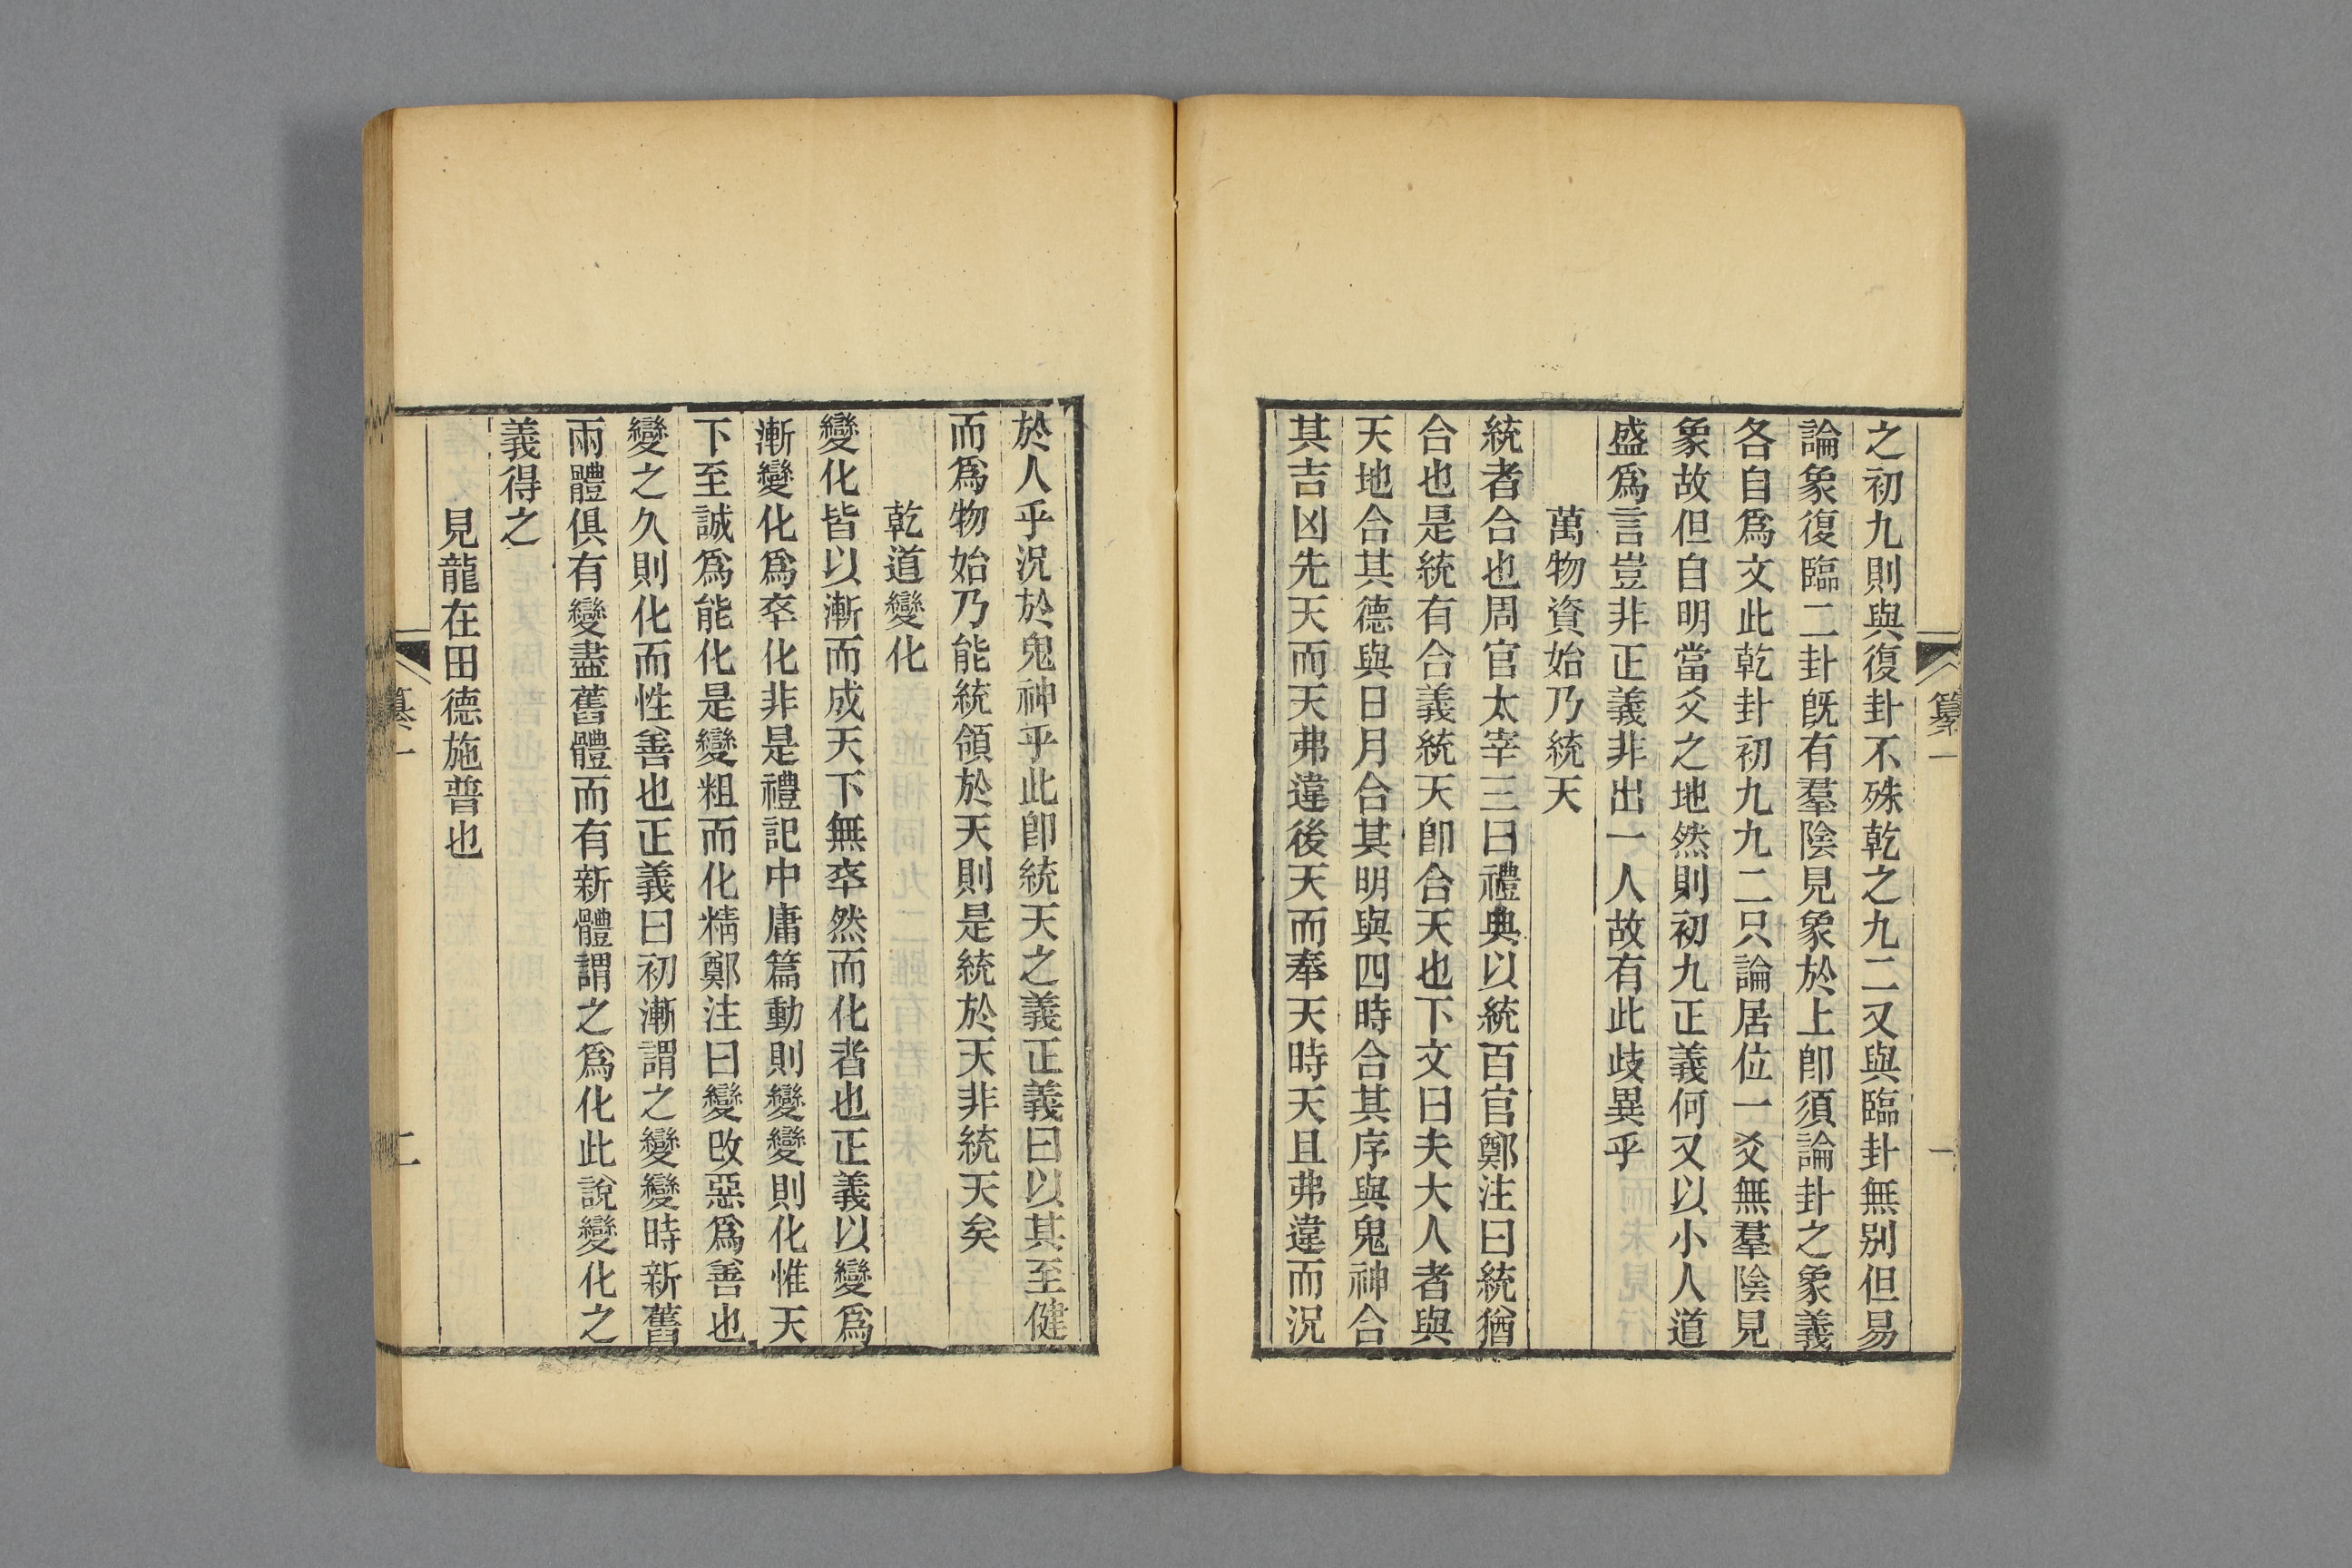 之初九則與復卦不殊乾之九二又與臨卦無别但易
論象復臨二卦旣有羣陰見象於上卽須論卦之象義
各自爲文此乾卦初九九二只論居位一爻無羣陰見
象故但自明當爻之地然則初九正義何又以小人道
盛爲言豈非正義非出一人故有此歧異乎
萬物資始乃統天
統者合也周官太宰三曰禮典以統百官鄭注曰統猶
合也是統有合義統天卽合天也下文曰夫大人者與
天地合其德與日月合其明與四時合其序與鬼神合
其吉凶先天而天弗違後天而奉天時天且弗違而況
於人乎況於鬼神乎此卽統天之義正義曰以其至健
而爲物始乃能統領於天則是統於天非統天矣
乾道變化
變化皆以漸而成天下無卒然而化者也正義以變爲
漸變化爲卒化非是禮記中庸篇動則變變則化惟天
下至誠爲能化是變粗而化精鄭注曰變改惡爲善也
變之久則化而性善也正義曰初漸謂之變變時新舊
兩體俱有變盡舊體而有新體謂之爲化此說變化之
義得之
見龍在田德施普也
纂一
二